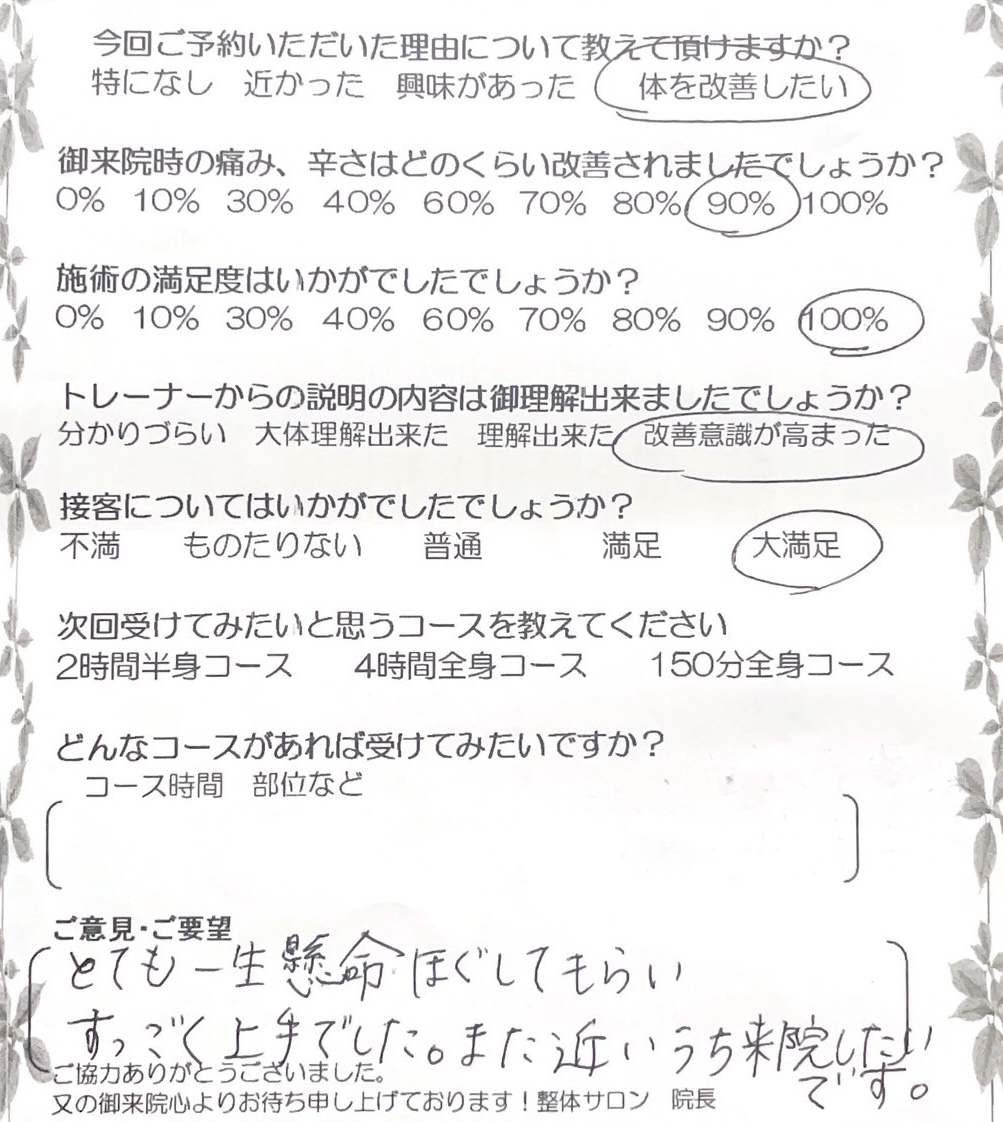 今回ご予約いただいた理由について教えて頂けますか？
特になし 近かった 興味があった 体を改善したい
御来院時の痛み、辛さはどのくらい改善されましたでしょうか？
0% 10% 30% 40% 60% 70% 80% 90% 100%
施術の満足度はいかがでしたでしょうか？
0% 10% 30% 40% 60% 70% 80% 90% 100%
トレーナーからの説明の内容は御理解出来ましたでしょうか？
分かりづらい 大体理解出来た 理解出来た 改善意識が高まった
接客についてはいかがでしたでしょうか？
不満 ものたりない 普通 満足 大満足
次回受けてみたいと思うコースを教えてください
2時間半身コース 4時間全身コース 150分全身コース
どんなコースがあれば受けてみたいですか？
コース時間 部位など
ご意見・ご要望
とても一生懸命ほぐしてもらい
すっごく上手でした。また近いうち来院したい
です。
ご協力ありがとうございました。
又の御来院心よりお待ち申し上げております！整体サロン 院長